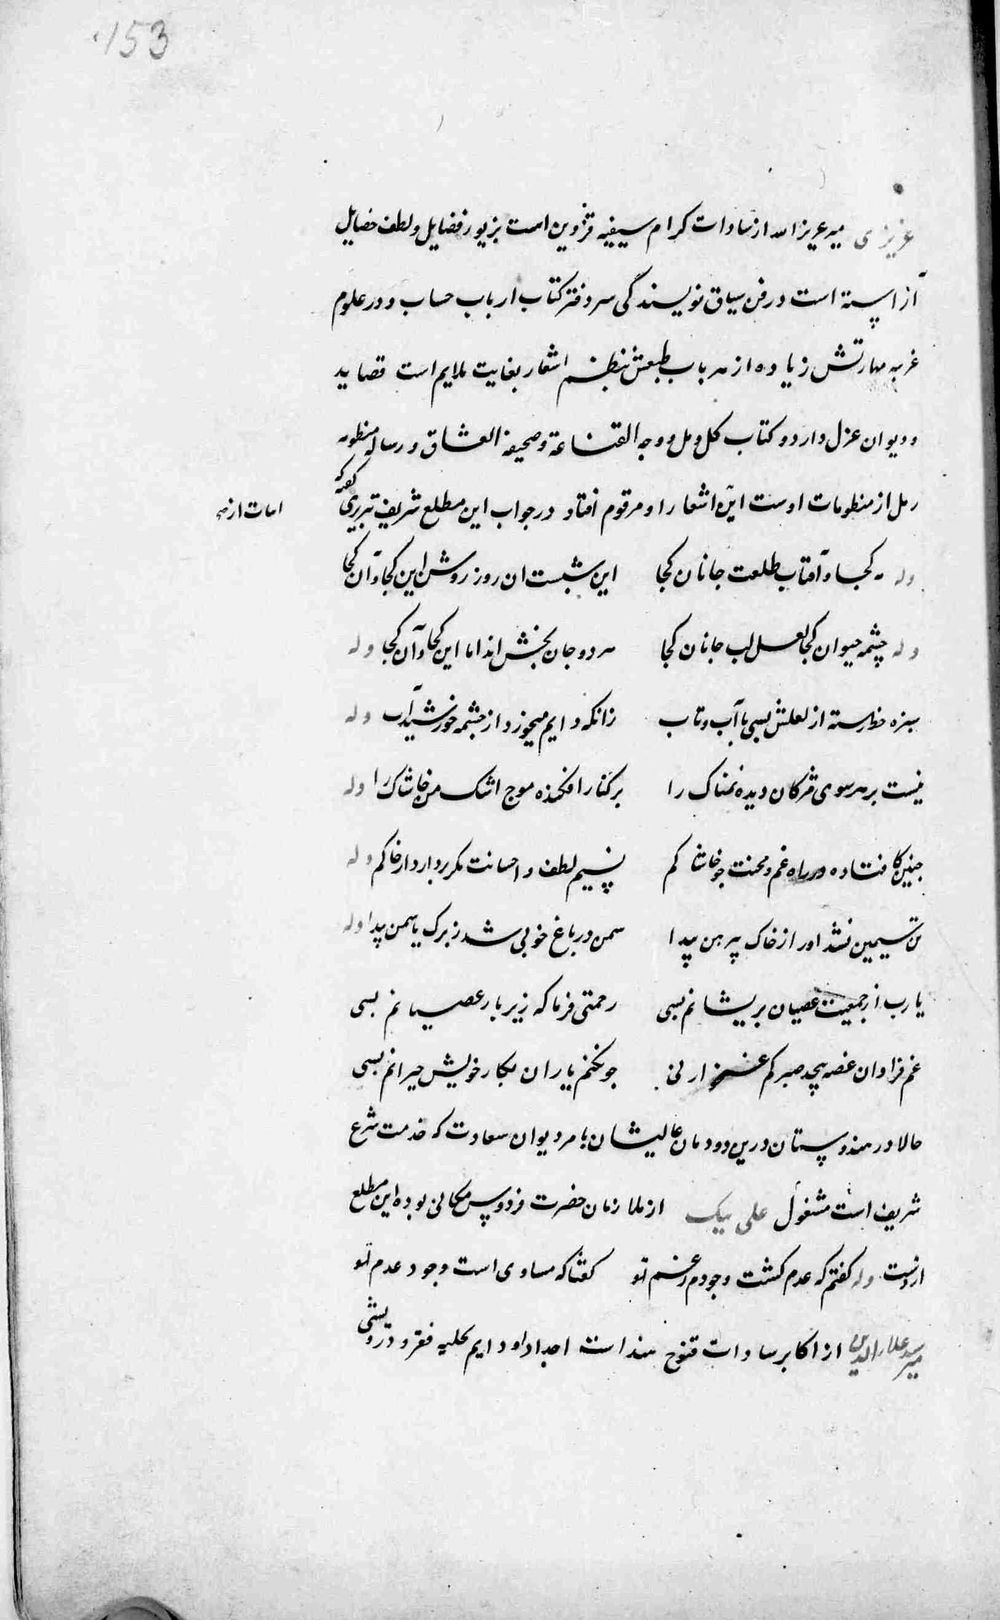 153
عزیزی میر عزیز الله از سادات کرام سیفیه قزوین است بزیور فضایل و لطف خصایل
آراسته است در فن سیاق نویسندگی سر دفتر کتاب ارباب حساب و در علوم
غریبه مهارتش زیاده از هر باب طبعش بنظم اشعار بغایت ملایم است قصاید
و دیوان غزل دارد و کتاب گل و مل و وجه القناعة و صحیفة العشاق و رساله منظومه
رمل از منظومات اوست این اشعار او مرقوم افتاد در جواب این مطلع شریف تبریزی گفته که
وله مه کجا و آفتاب طلعت جانان کجا این شبست ان روز روشن این کجا و آن کجا
وله چشمه حیوان کجا لعل لب جانان کجا هر دو جان بخش اند اما این کجا و آن کجا وله
سبزه خط رسته از لعلش بسی با آب و تاب زانکه دایم میخورد از چشمه خورشید آب وله
نیست بر هر سوی مژکان دیده نمناک را بر کنار افکنده موج اشک من خاشاک را وله
چنین کافتاده در راه غم و محنت چو خاشاکم نسیم لطف و احسانت مکر بردارد از خاکم وله
تن سیمین نشد اور از خاک پیرهن پیدا سمن در باغ خوبی شد ز برک یاسمن پیدا وله
یا رب از جمعیت عصیان پریشانم بسی رحمتی فرما که زیر بار عصیانم بسی
غم فراوان غصه بیحد صبر کم چو نکنم یاران بکار خویش حیرانم بسی
حالا در هندوستان درین دودمان عالیشان بامر دیوان سعادت که خدمت شرع
شریف است مشغول علی بیک از ملازمان حضرت فردوس مکانی بوده این مطلع
ازوست وله کفتم که عدم کشت وجودم ز غم تو کفتا که مساوی است وجود عدم تو
میر سید علاء الدین از اکابر سادات قنوج هند است اجداد او دایم بحلیه فقر و درویشی